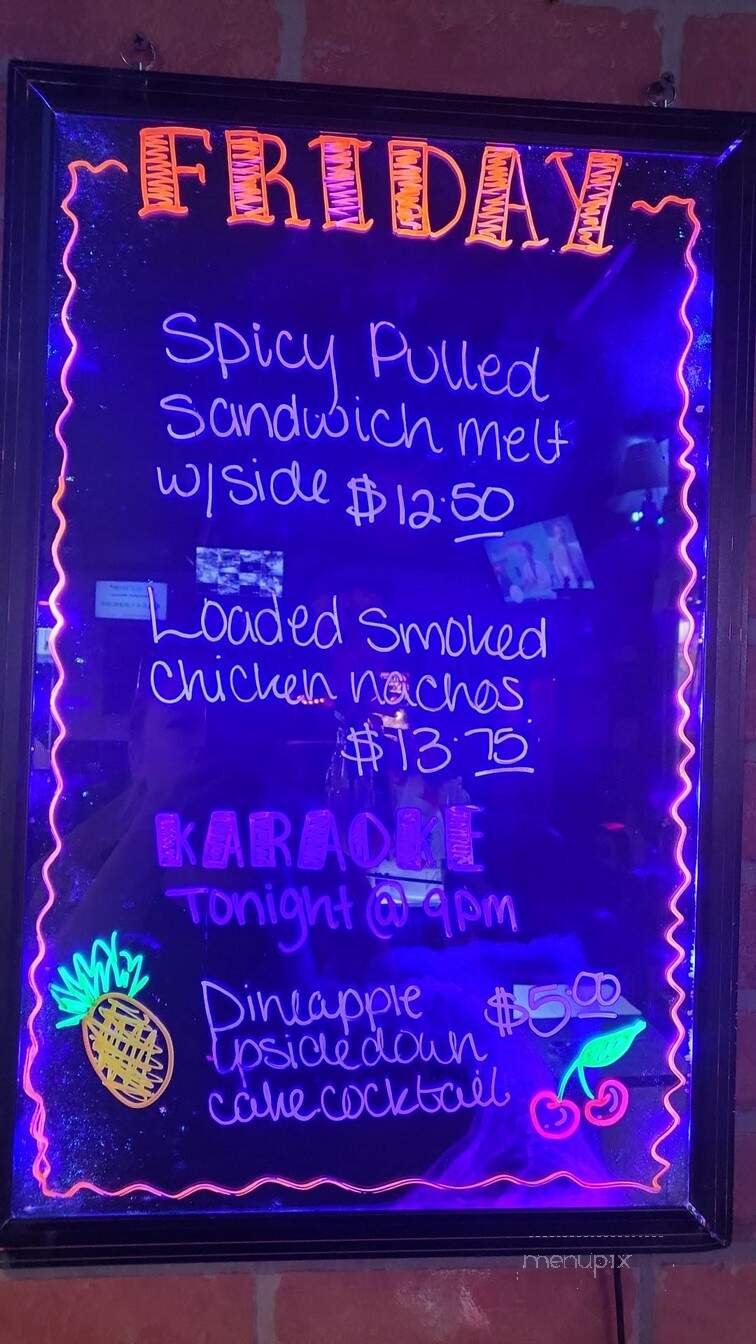 FRIDAY
Spicy Pulled
Sandwich melt
w/side $12.50
Loaded Smoked
chicken nachos
$13.75
KARAOKE
Tonight @ 9pm
Pineapple $5.00
upsidedown
cake cocktail
menupix